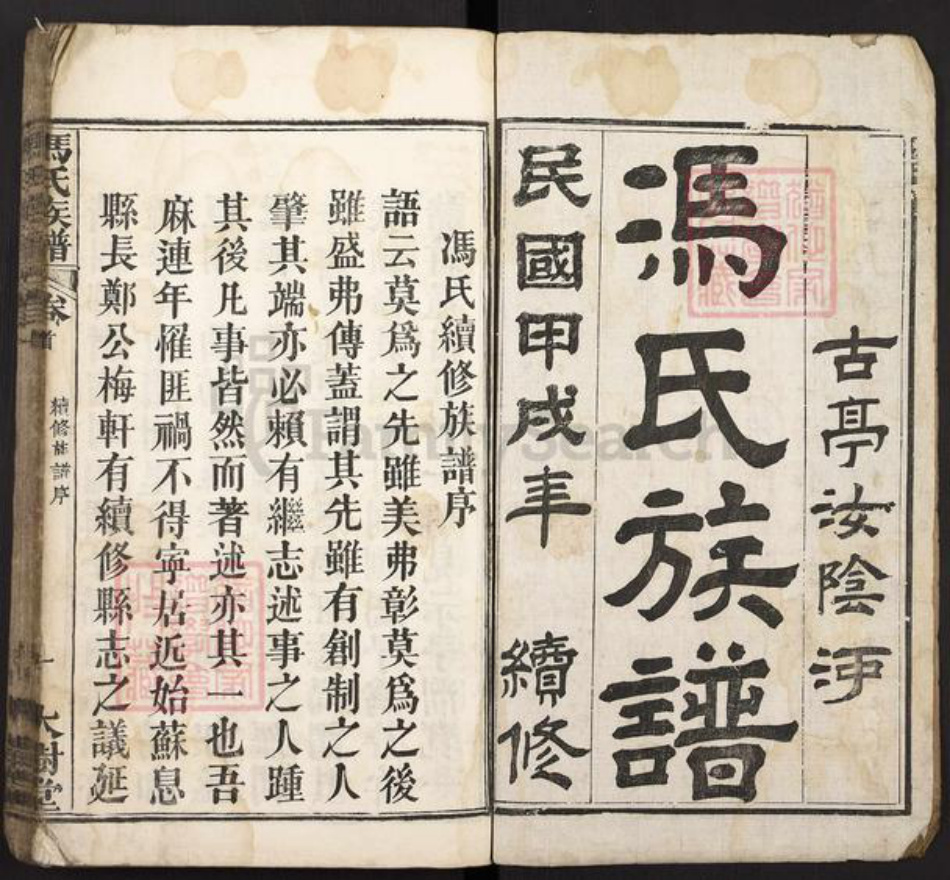 古亭汝陰河
馮氏族譜
民國甲戌年 續修
馮氏續修族譜序
語云莫爲之先雖美弗彰莫爲之後
雖盛弗傳蓋謂其先雖有創制之人
肇其端亦必賴有繼志述事之人踵
其後凡事皆然而著述亦其一也吾
麻連年罹匪禍不得寧居近始蘇息
縣長鄭公梅軒有續修縣志之議延
馮氏族譜 卷首 續修族譜序 一 大樹堂
FamilySearch